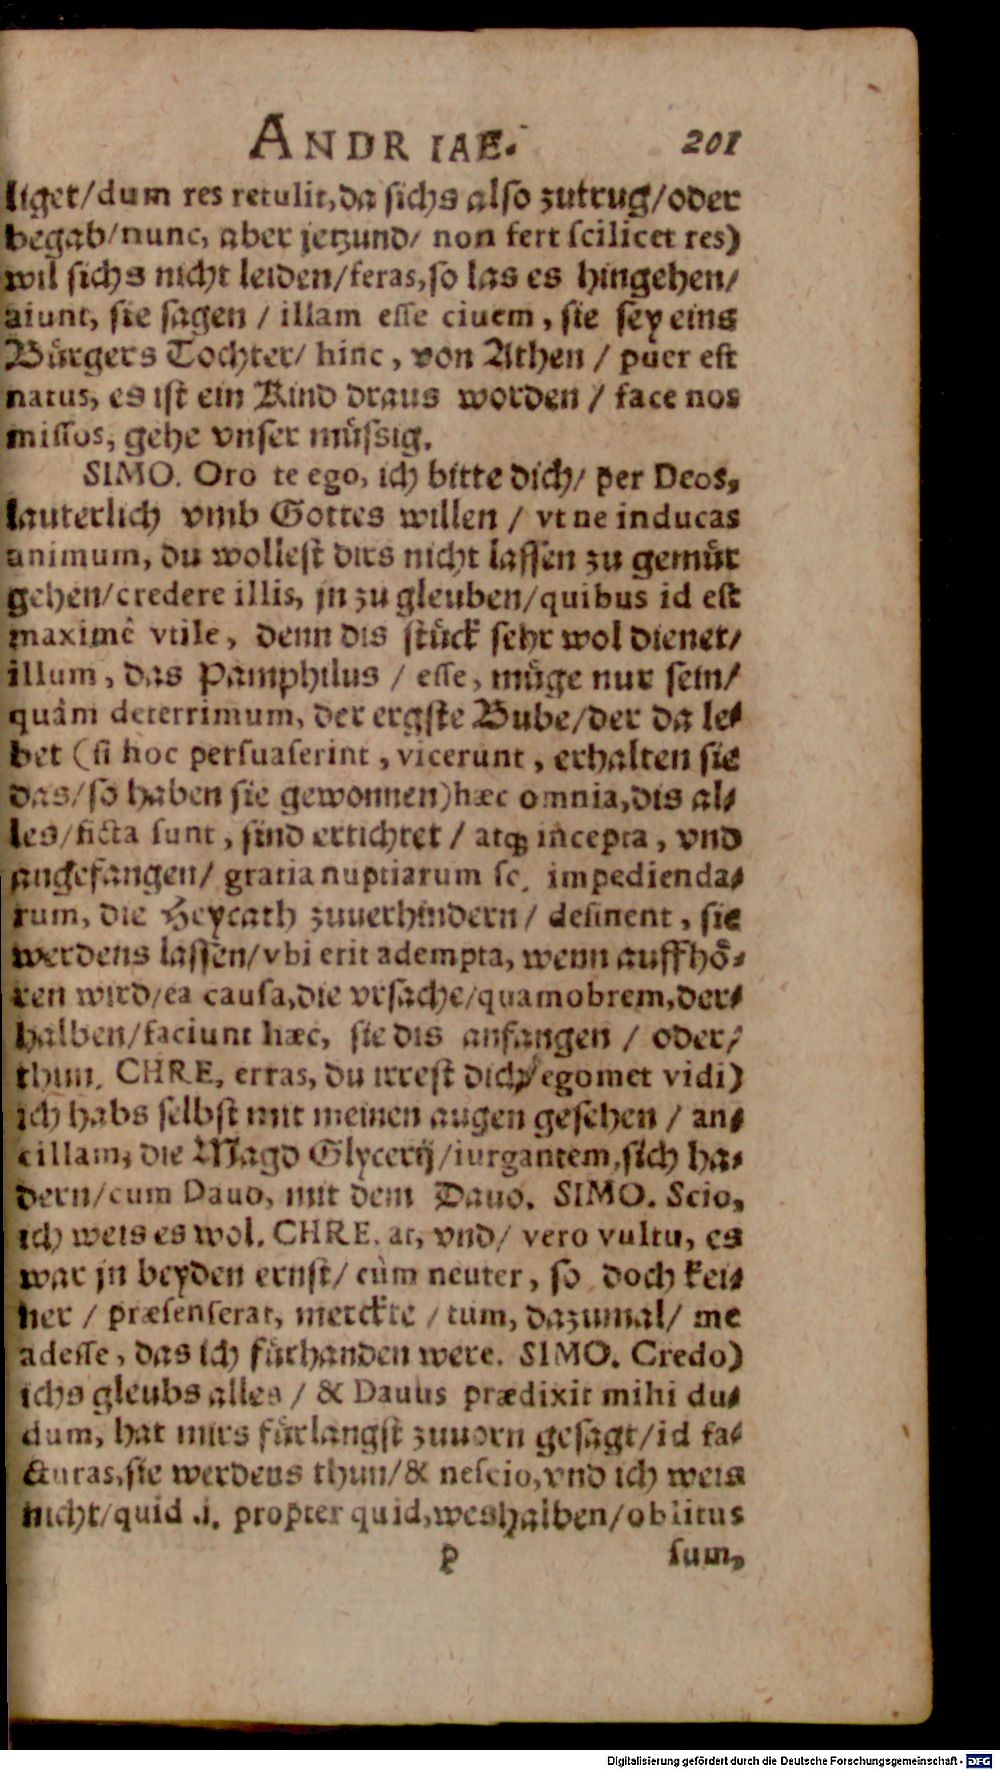 ANDRIAE. 201
liget/dum res retulit, da sichs also zutrug/oder
begab/nunc, aber jetzund/ non fert scilicet res)
wil sichs nicht leiden/feras, so las es hingehen/
aiunt, sie sagen / illam esse ciuem, sie sey eins
Bürgers Tochter/ hinc, von Athen / puer est
natus, es ist ein Kind draus worden / face nos
missos, gehe vnser müssig.
SIMO. Oro te ego, ich bitte dich/ per Deos,
lauterlich vmb Gottes willen / vt ne inducas
animum, du wollest dirs nicht lassen zu gemüt
gehen/credere illis, jn zu gleuben/quibus id est
maximè vtile, denn dis stück sehr wol dienet/
illum, das Pamphilus / esse, müge nur sein/
quàm deterrimum, der ergste Bube/der da le-
bet (si hoc persuaserint, vicerunt, erhalten sie
das/so haben sie gewonnen) hæc omnia, dis al-
les/ficta sunt, sind ertichtet / atq; incepta, vnd
angefangen/ gratia nuptiarum sc. impedienda-
rum, die Heyrath zuuerhindern/ desinent, sie
werdens lassen/vbi erit adempta, wenn auffhö-
ren wird/ea causa, die vrsache/quamobrem, der-
halben/faciunt hæc, sie dis anfangen / oder/
thun. CHRE, erras, du irrest dich/egomet vidi)
ich habs selbst mit meinen augen gesehen / an-
cillam, die Magd Glycerij/iurgantem, sich ha-
dern/cum Dauo, mit dem Dauo. SIMO. Scio,
ich weis es wol. CHRE. at, vnd/ vero vultu, es
war jn beyden ernst/ cùm neuter, so doch kei-
ner / præsenserat, merckte / tum, dazumal/ me
adesse, das ich fürhanden were. SIMO. Credo)
ichs gleubs alles / & Dauus prædixit mihi du-
dum, hat mirs fürlangst zuuorn gesagt/id fa-
cturas, sie werdens thun/& nescio, vnd ich weis
nicht/quid .i. propter quid, weshalben/oblitus
P sum,
Digitalisierung gefördert durch die Deutsche Forschungsgemeinschaft - DFG